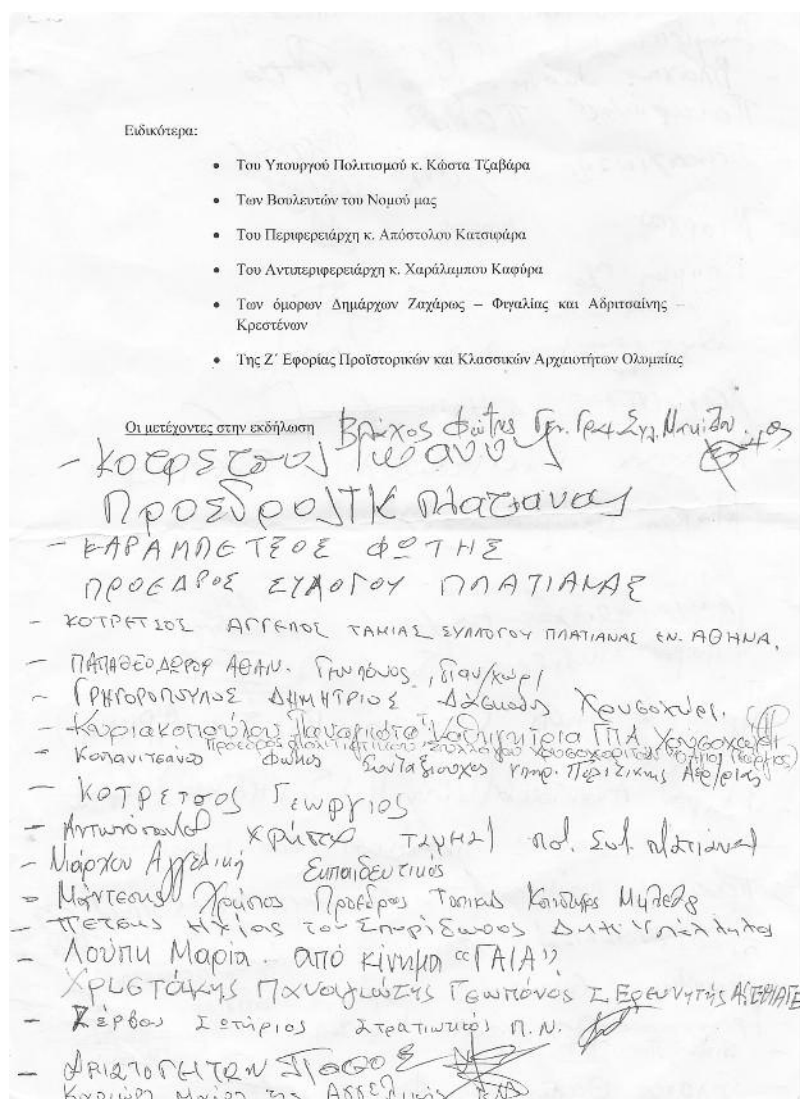 Ειδικότερα:
• Του Υπουργού Πολιτισμού κ. Κώστα Τζαβάρα
• Των Βουλευτών του Νομού μας
• Του Περιφερειάρχη κ. Απόστολου Κατσιφάρα
• Του Αντιπεριφερειάρχη κ. Χαράλαμπου Καφύρα
• Των όμορων Δημάρχων Ζαχάρως – Φιγαλίας και Αδριτσαίνης –
Κρεστένων
• Της Ζ΄ Εφορίας Προϊστορικών και Κλασσικών Αρχαιοτήτων Ολυμπίας
Οι μετέχοντες στην εκδήλωση Βλάχος Φώτης Γεν. Γραμ. Συλ.
- Κοτρετσος Ιωαννης
Προεδρος ΤΚ Πλατιανας
- ΚΑΡΑΜΠΕΤΣΟΣ ΦΩΤΗΣ
ΠΡΟΕΔΡΟΣ ΣΥΛΟΓΟΥ ΠΛΑΤΙΑΝΑΣ
- ΚΟΤΡΕΤΣΟΣ ΑΓΓΕΛΟΣ ΤΑΜΙΑΣ ΣΥΛΛΟΓΟΥ ΠΛΑΤΙΑΝΑΣ ΕΝ. ΑΘΗΝΑ.
- ΠΑΠΑΘΕΟΔΩΡΟΥ ΑΘΑΝ. Γεωπόνος
- ΓΡΗΓΟΡΟΠΟΥΛΟΣ ΔΗΜΗΤΡΙΟΣ Δάσκαλος Χρυσοχώρι.
- Κυριακοπούλου Παναγιώτα Καθηγήτρια ΓΠΑ Χρυσοχώρι
Πρόεδρος Πολιτιστικού Συλλόγου Χρυσοχωριτών "Ο Άγιος Γεώργιος"
- Κοπανιτσάνος Φώτιος Συνταξιούχος Υπηρ. Πολιτικής Αερ/ρίας
- ΚΟΤΡΕΤΣΟΣ Γεωργιος
- Αντωνόπουλος Χρήστος ταμίας πολ. Συλ. πλατιάνας
- Μάρκου Αγγελική Εκπαιδευτικός
- Μάντεσης Χρήστος Πρόεδρος Τοπικής Κοινότητας
- Πέτσης Ηλίας του Σπυρίδωνος Δημ. Υπάλληλος
- Λούπη Μαρία - από κίνημα "ΓΑΙΑ".
Χρηστάκης Παναγιώτης Γεωπόνος Ερευνητής
- Ζέρβας Σωτήριος Στρατιωτικός Π.Ν.
- ΑΡΙΣΤΟΓΕΙΤΩΝ